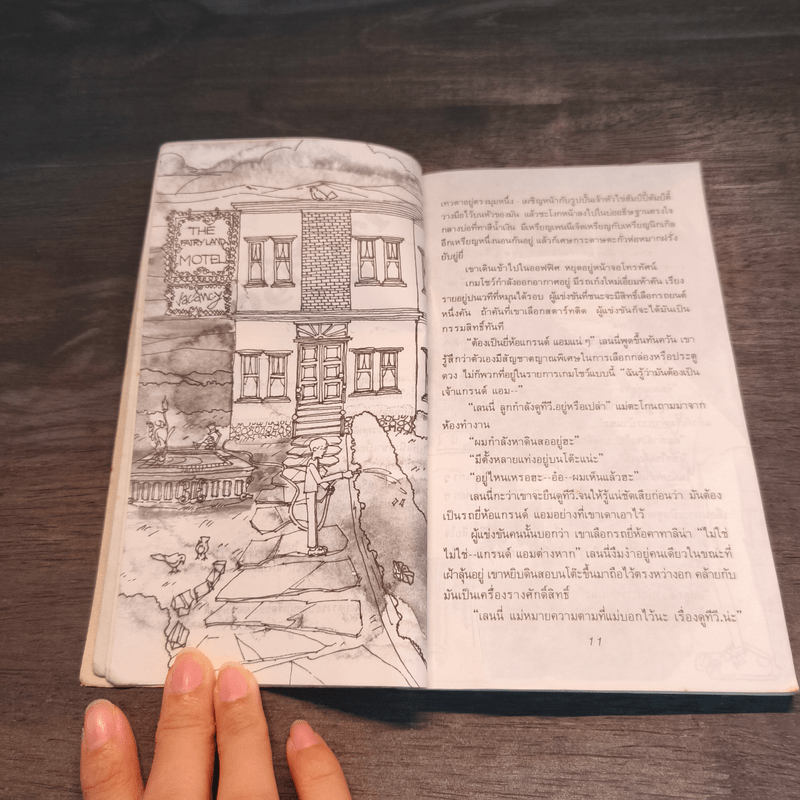 THE
FAIRYLAND
MOTEL
Vacancy
เทวดาอยู่ตรงมุมหนึ่ง เผชิญหน้ากับรูปปั้นเจ้าหัวไข่ฮัมป์ตี้ดัมป์ตี้
วางมือไว้บนหัวของมัน แล้วชะโงกหน้าลงไปในบ่ออธิษฐานตรงใจ
กลางบ่อที่ทาสีน้ำเงิน มีเหรียญเพนนีเจ็ดเหรียญกับเหรียญนิกเกิล
อีกเหรียญหนึ่งนอนก้นอยู่ แล้วก็เศษกระดาษตะกั่วห่อหมากฝรั่ง
ยับยู่ยี่
เขาเดินเข้าไปในออฟฟิศ หยุดอยู่หน้าจอโทรทัศน์
เกมโชว์กำลังออกอากาศอยู่ มีรถเก๋งใหม่เอี่ยมห้าคัน เรียง
รายอยู่บนเวทีที่หมุนได้รอบ ผู้แข่งขันที่ชนะจะมีสิทธิ์เลือกรถยนต์
หนึ่งคัน ถ้าคันที่เขาเลือกสตาร์ทติด ผู้แข่งขันก็จะได้มันเป็น
กรรมสิทธิ์ทันที
“ต้องเป็นยี่ห้อแกรนด์ แอมแน่ ๆ” เลนนี่พูดขึ้นทันควัน เขา
รู้สึกว่าตัวเองมีสัญชาตญาณพิเศษในการเลือกกล่องหรือประตู
ดวง ไม่ก็พวกที่อยู่ในรายการเกมโชว์แบบนี้ “ฉันรู้ว่ามันต้องเป็น
เจ้าแกรนด์ แอม--”
“เลนนี่ ลูกกำลังดูทีวี.อยู่หรือเปล่า” แม่ตะโกนถามมาจาก
ห้องทำงาน
“ผมกำลังหาดินสออยู่ฮะ”
“มีตั้งหลายแท่งอยู่บนโต๊ะแน่ะ”
“อยู่ไหนเหรอฮะ--อ๋อ--ผมเห็นแล้วฮะ”
เลนนี่กะว่าเขาจะยืนดูทีวี.จนให้รู้แน่ชัดเสียก่อนว่า มันต้อง
เป็นรถยี่ห้อแกรนด์ แอมอย่างที่เขาเดาเอาไว้
ผู้แข่งขันคนนั้นบอกว่า เขาเลือกรถยี่ห้อคาทาลิน่า “ไม่ใช่
ไม่ใช่--แกรนด์ แอมต่างหาก” เลนนี่งึมงำอยู่คนเดียวในขณะที่
เฝ้าลุ้นอยู่ เขาหยิบดินสอบนโต๊ะขึ้นมาถือไว้ตรงหว่างอก คล้ายกับ
มันเป็นเครื่องรางศักดิ์สิทธิ์
“เลนนี่ แม่หมายความตามที่แม่บอกไว้นะ เรื่องดูทีวี.น่ะ”
11